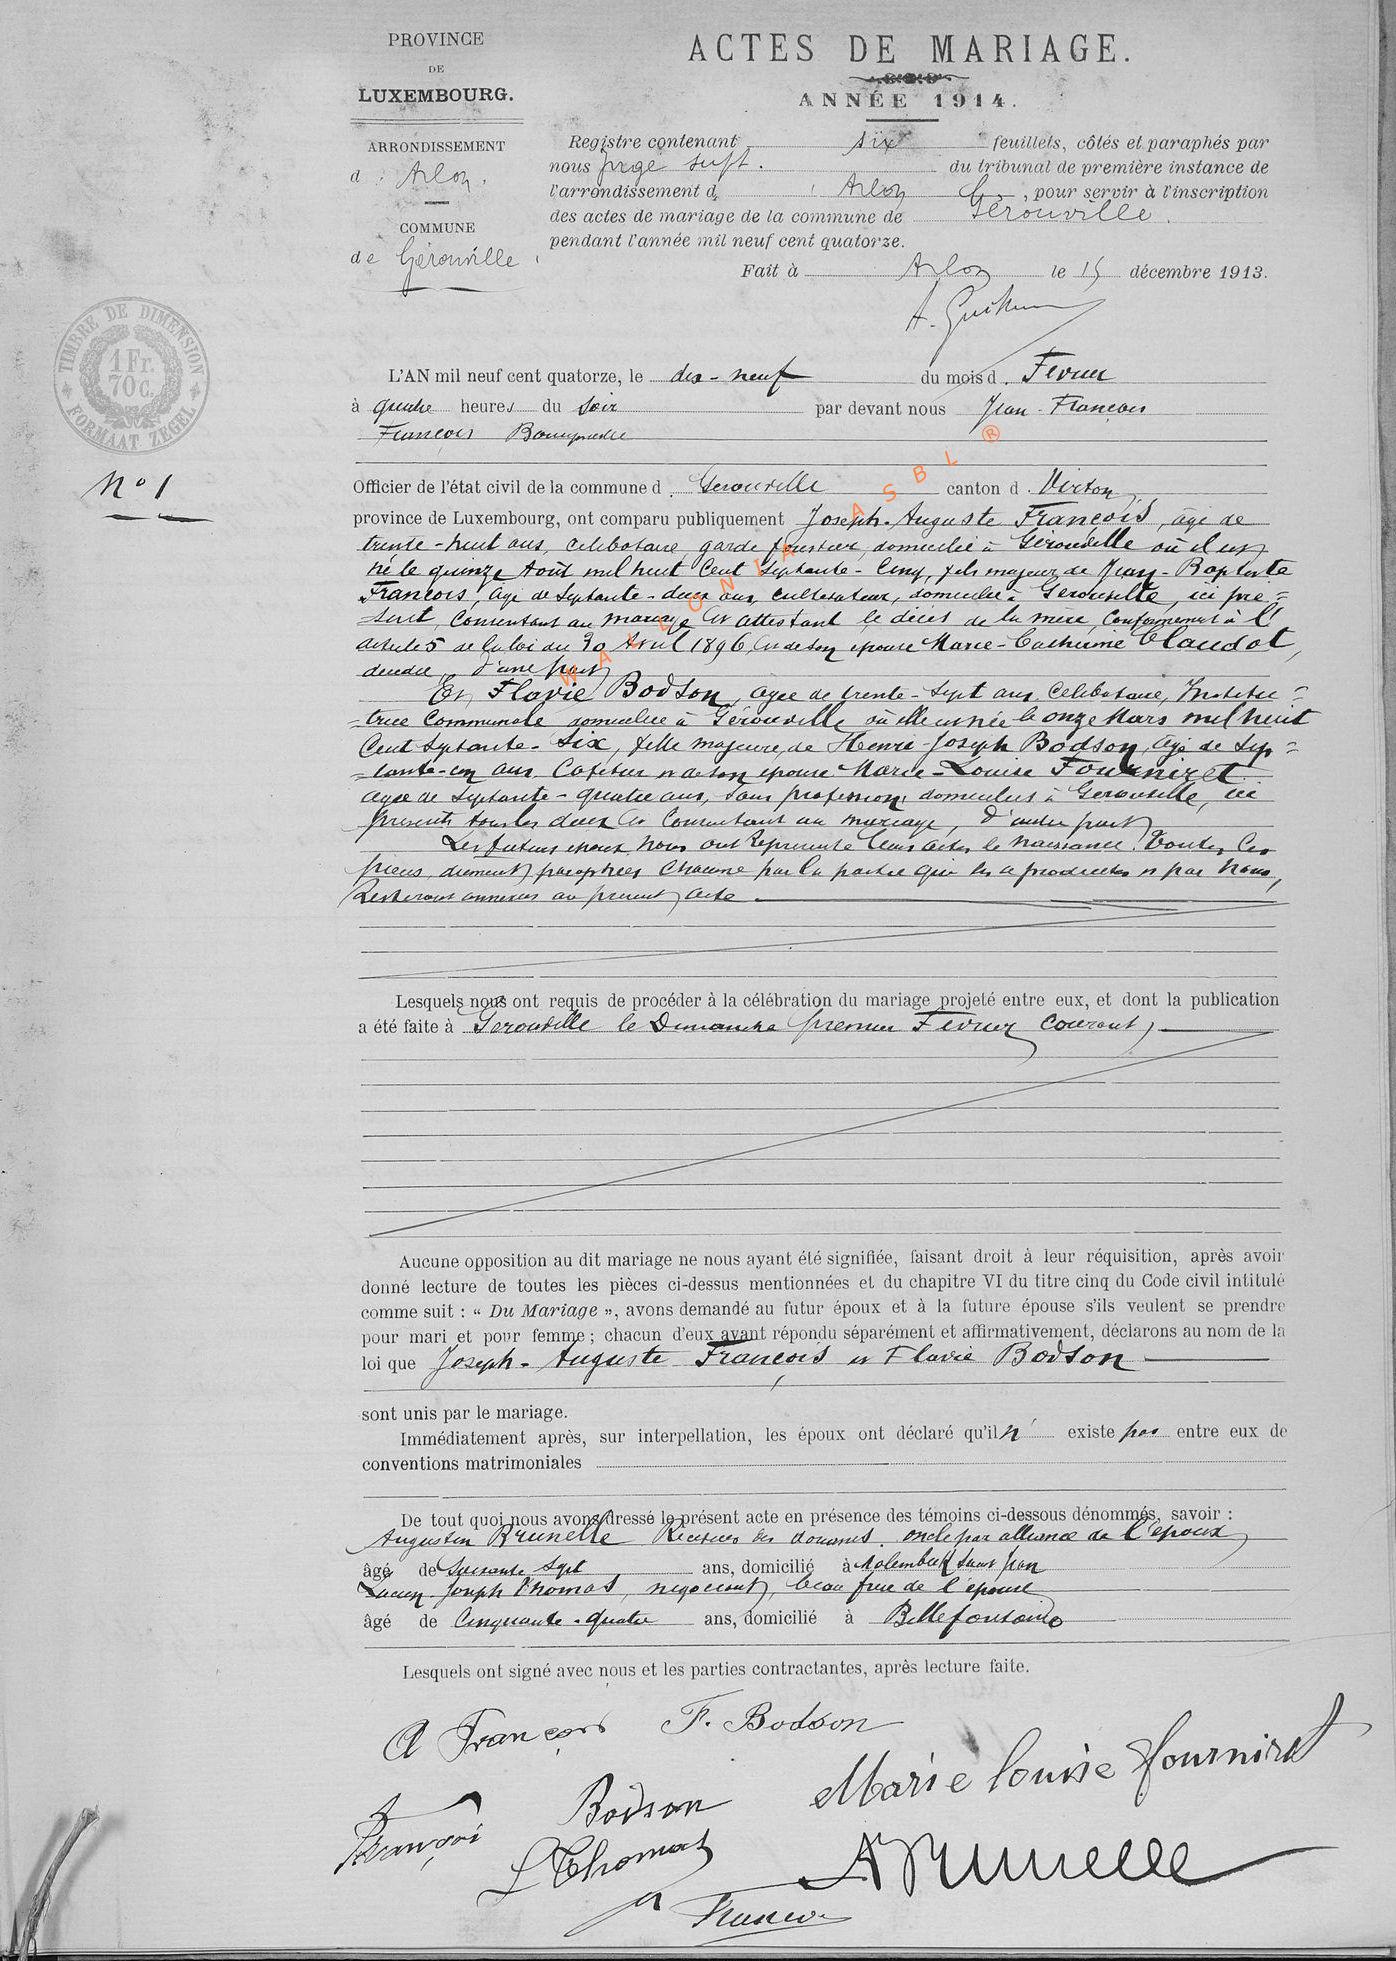 PROVINCE
DE
LUXEMBOURG.
ARRONDISSEMENT
d' Arlon.
COMMUNE
de Gérouville
ACTES DE MARIAGE.
ANNÉE 1914.
Registre contenant six feuillets, côtés et paraphés par
nous juge supt. du tribunal de première instance de
l'arrondissement d' Arlon, pour servir à l'inscription
des actes de mariage de la commune de Gérouville.
pendant l'année mil neuf cent quatorze.
Fait à Arlon le 15 décembre 1913.
TIMBRE DE DIMENSION
1 Fr.
70 c.
FORMAAT ZEGEL
No 1
L'AN mil neuf cent quatorze, le dix-neuf du mois d Fevrier
à quatre heures du soir par devant nous Jean-François
François
Officier de l'état civil de la commune d Gerouville canton d Virton,
province de Luxembourg, ont comparu publiquement Joseph-Auguste François, âgé de
trente-huit ans, celibataire, garde forestier, domicilié à Gérouville où il est
né le quinze Août mil huit cent septante-cinq, fils majeur de Jean-Baptiste
François, âgé de septante-deux ans, cultivateur, domicilié à Gerouville, ici pré=
=sent, consentant au mariage et attestant le décès de la mère, conformément à l'
article 5 de la loi du 30 Avril 1896, et de son epouse Marie-Catherine Claudot,
décédée, d'une part
Et Flavie Bodson, agée de trente-sept ans, célibataire, Institu=
=trice communale domiciliée à Gérouville où elle est née le onze Mars mil huit
cent septante-six, fille majeure, de Henri-Joseph Bodson, âgé de sep=
=tante-cinq ans, cafetier et de son epouse Marie-Louise Fourniret
agée de septante-quatre ans, sans profession, domiciliés à Gerouville, ici
présents tous les deux et consentant au mariage, d'autre part
Les futurs epoux nous ont représenté leurs actes de naissance. Toutes ces
pièces dûment paraphées chacune par la partie qui les a produites et par nous,
resteront annexées au présent acte
Lesquels nous ont requis de procéder à la célébration du mariage projeté entre eux, et dont la publication
a été faite à Gerouville le Dimanche premier Fevrier courant,
Aucune opposition au dit mariage ne nous ayant été signifiée, faisant droit à leur réquisition, après avoir
donné lecture de toutes les pièces ci-dessus mentionnées et du chapitre VI du titre cinq du Code civil intitulé
comme suit : « Du Mariage », avons demandé au futur époux et à la future épouse s'ils veulent se prendre
pour mari et pour femme ; chacun d'eux ayant répondu séparément et affirmativement, déclarons au nom de la
loi que Joseph-Auguste François et Flavie Bodson
sont unis par le mariage.
Immédiatement après, sur interpellation, les époux ont déclaré qu'il n' existe pas entre eux de
conventions matrimoniales
De tout quoi nous avons dressé le présent acte en présence des témoins ci-dessous dénommés, savoir :
Augustin Brunelle Receveur des douanes, oncle par alliance de l'époux
âgé de soixante sept ans, domicilié à Molenbeek Saint Jean
Lucien-Joseph Thomas, négociant, beau frère de l'épouse
âgé de cinquante-quatre ans, domicilié à Bellefontaine
Lesquels ont signé avec nous et les parties contractantes, après lecture faite.
A François F. Bodson
Marie louise fourniret
François Bodson
L Thomas ABrunelle
François
WALLONIA ASBL ®